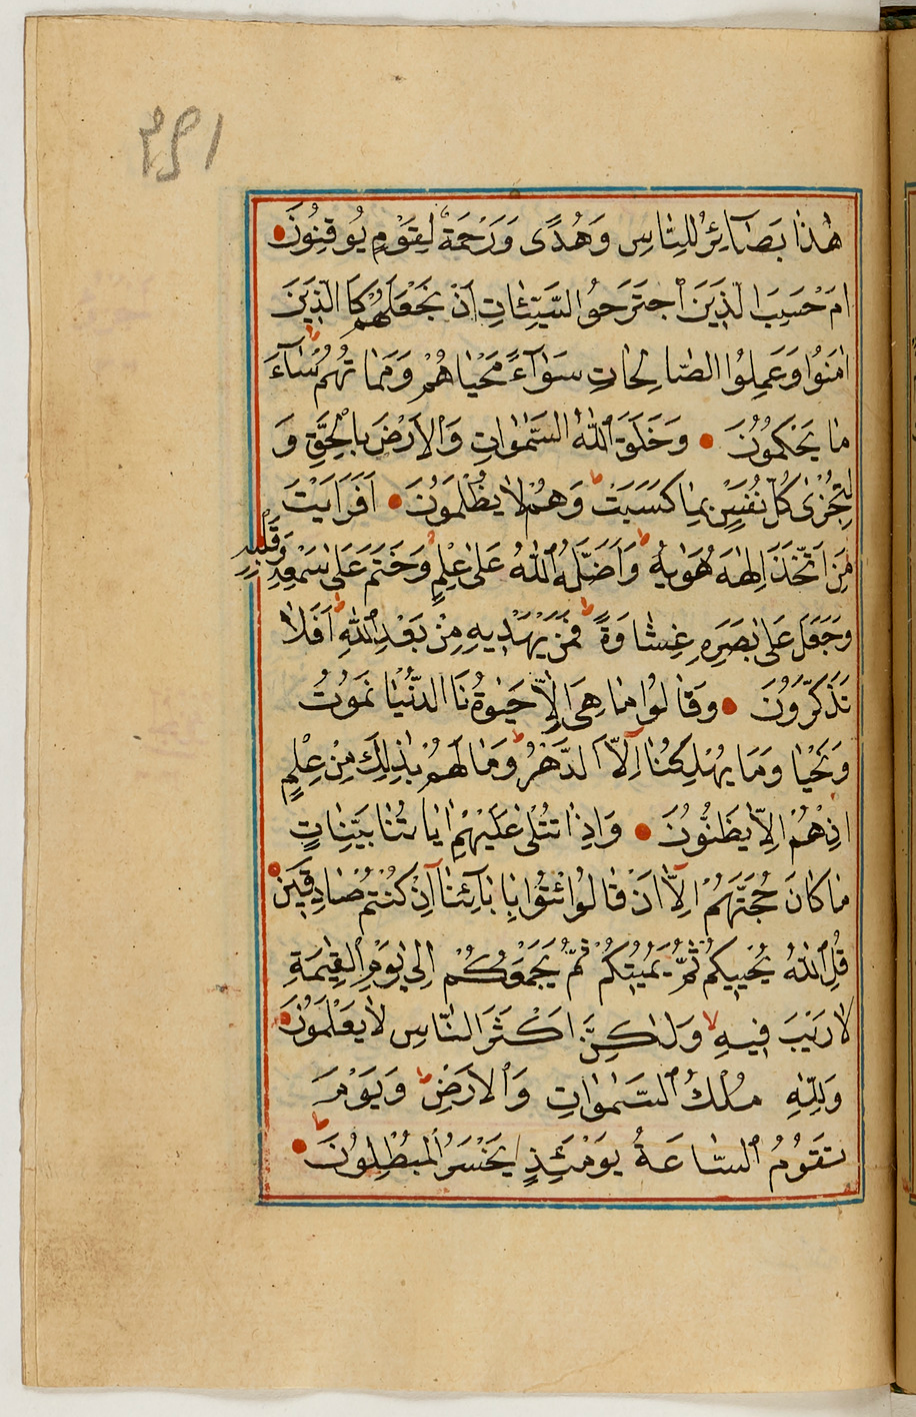 ٢٩١
هٰذَا بَصَآئِرُ لِلنَّاسِ وَهُدًى وَرَحْمَةٌ لِقَوْمٍ يُوقِنُونَ
اَمْ حَسِبَ الَّذِينَ اجْتَرَحُوا السَّيِّئَاتِ اَنْ نَجْعَلَهُمْ كَالَّذِينَ
اٰمَنُوا وَعَمِلُوا الصَّالِحَاتِ سَوَآءً مَحْيَاهُمْ وَمَمَاتُهُمْ سَآءَ
مَا يَحْكُمُونَ وَخَلَقَ اللّٰهُ السَّمٰوَاتِ وَالْاَرْضَ بِالْحَقِّ وَ
لِتُجْزٰى كُلُّ نَفْسٍ بِمَا كَسَبَتْ وَهُمْ لَا يُظْلَمُونَ اَفَرَاَيْتَ
مَنِ اتَّخَذَ اِلٰهَهُ هَوٰيهُ وَاَضَلَّهُ اللّٰهُ عَلٰى عِلْمٍ وَخَتَمَ عَلٰى سَمْعِهِ وَقَلْبِهِ
وَجَعَلَ عَلٰى بَصَرِهِ غِشَاوَةً فَمَنْ يَهْدِيهِ مِنْ بَعْدِ اللّٰهِ اَفَلَا
تَذَكَّرُونَ وَقَالُوا مَا هِيَ اِلَّا حَيٰوتُنَا الدُّنْيَا نَمُوتُ
وَنَحْيَا وَمَا يُهْلِكُنَا اِلَّا الدَّهْرُ وَمَا لَهُمْ بِذٰلِكَ مِنْ عِلْمٍ
اِنْ هُمْ اِلَّا يَظُنُّونَ وَاِذَا تُتْلٰى عَلَيْهِمْ اٰيَاتُنَا بَيِّنَاتٍ
مَا كَانَ حُجَّتَهُمْ اِلَّا اَنْ قَالُوا ائْتُوا بِاٰبَآئِنَا اِنْ كُنْتُمْ صَادِقِينَ
قُلِ اللّٰهُ يُحْيِيكُمْ ثُمَّ يُمِيتُكُمْ ثُمَّ يَجْمَعُكُمْ اِلٰى يَوْمِ الْقِيٰمَةِ
لَا رَيْبَ فِيهِ وَلٰكِنَّ اَكْثَرَ النَّاسِ لَا يَعْلَمُونَ
وَلِلّٰهِ مُلْكُ السَّمٰوَاتِ وَالْاَرْضِ وَيَوْمَ
تَقُومُ السَّاعَةُ يَوْمَئِذٍ يَخْسَرُ الْمُبْطِلُونَ